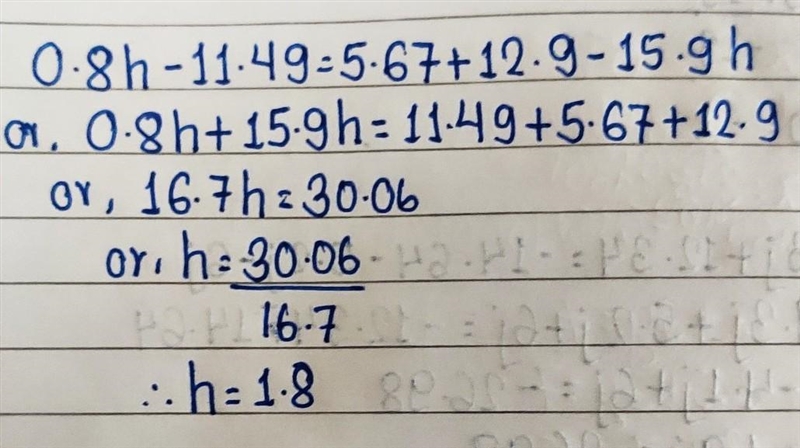 0.8h-11.49=5.67+12.9-15.9h
or. 0.8h+15.9h=11.49+5.67+12.9
or, 16.7h=30.06
or, h=30.06/16.7
∴h=1.8